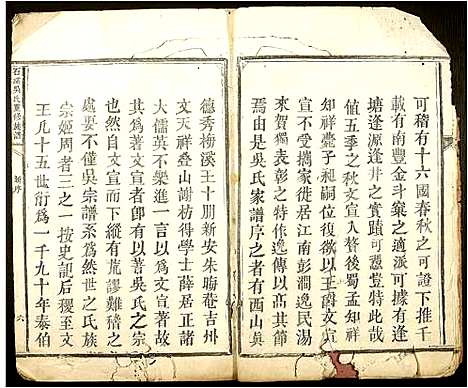 可稽有十六國春秋之可證下推千
載有南豐金斗巢之適派可據有逢
塘逢源逢井之實蹟可憑豈特此
值五季之秋文宣入贅後蜀孟知祥
知祥薨子昶嗣位復欲以王爵文宣
宣不受攜家徙居江南彭澗逸民湯
來賀獨表彰之特作逸傳以高其節
焉由是吳氏家譜序之者有西山真
德秀梅溪王十朋新安朱晦菴吉州
文天祥叠山謝枋得學士薛居正當代
大儒英不槩進一言以弁吳氏之宗
其為著文宣者卽有以著吳氏之宗
自文宣而下縱有荒謬難稽之
處要不僅吳宗譜系為然世之氏族
宗姬周者三之一按史記后稷至文
王凡十五世衍為一千九十年泰伯
石溪吳氏重修族譜
新序
六